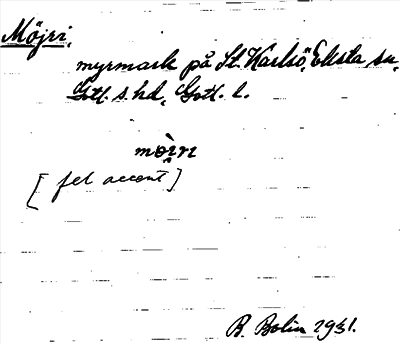 Möjri,
myrmark på St. Karlsö, Eksta sn,
Gotl. s. hd, Gotl. l.
mòi̯ri
[fel accent]
B. Bolin 1931.